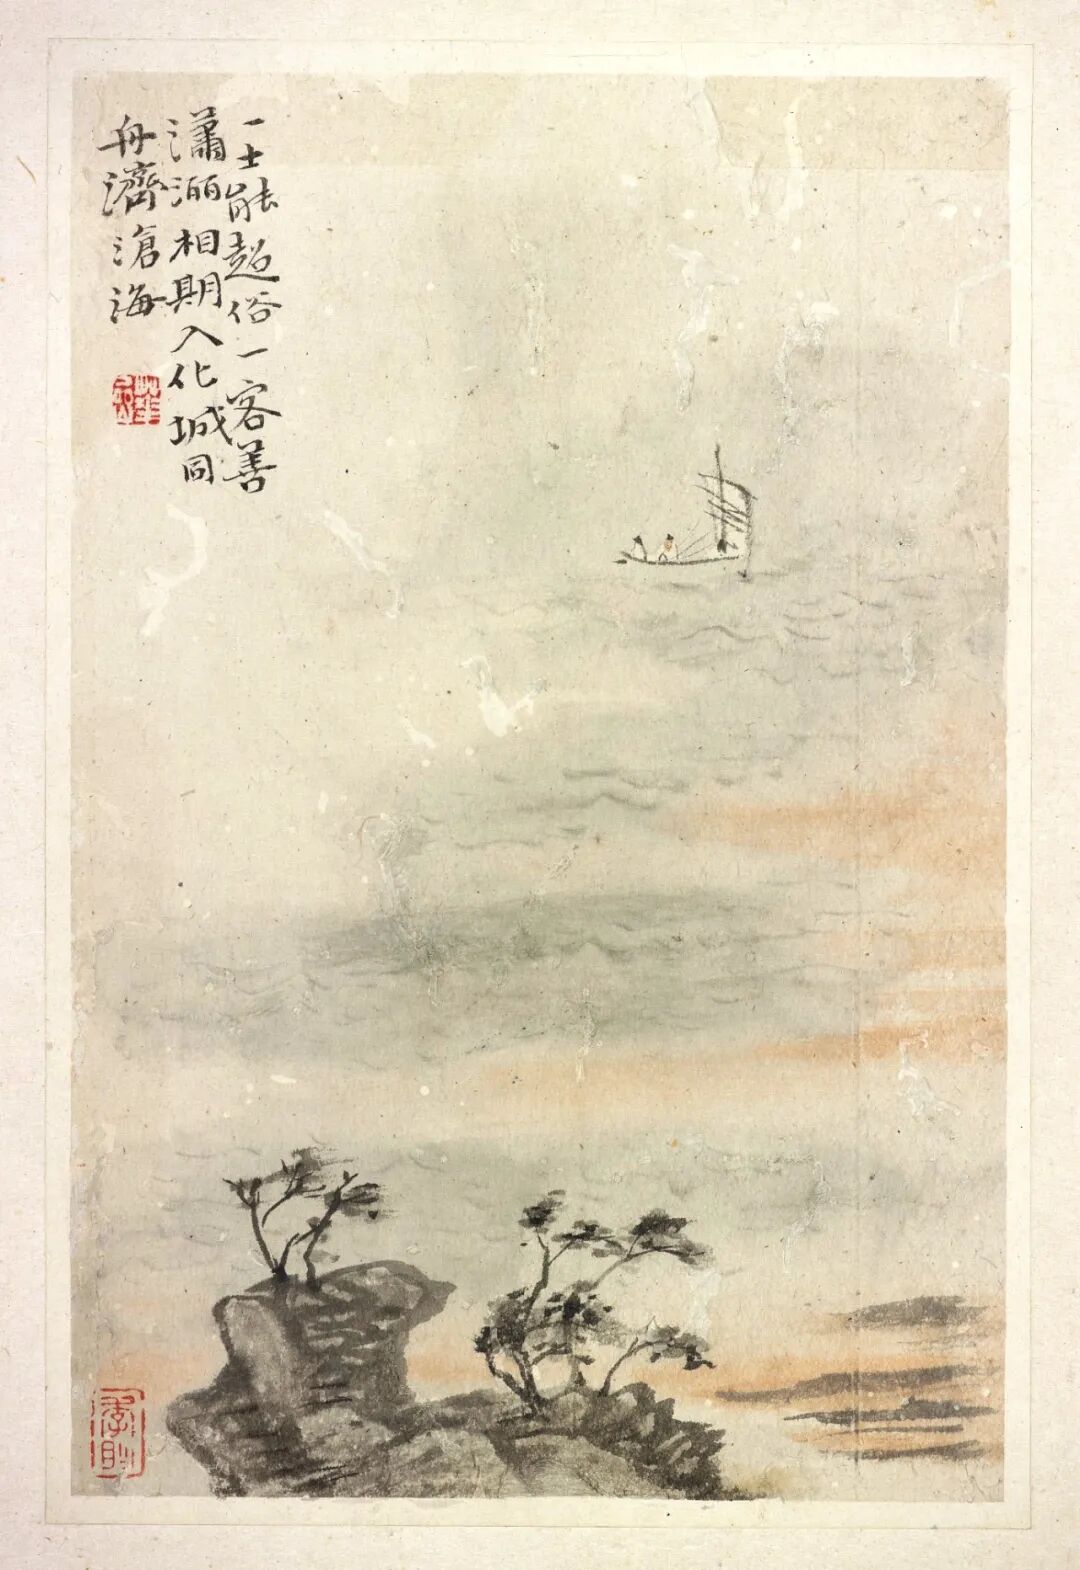 一士能超俗一客善
瀟洒相期入化城同
舟濟滄海